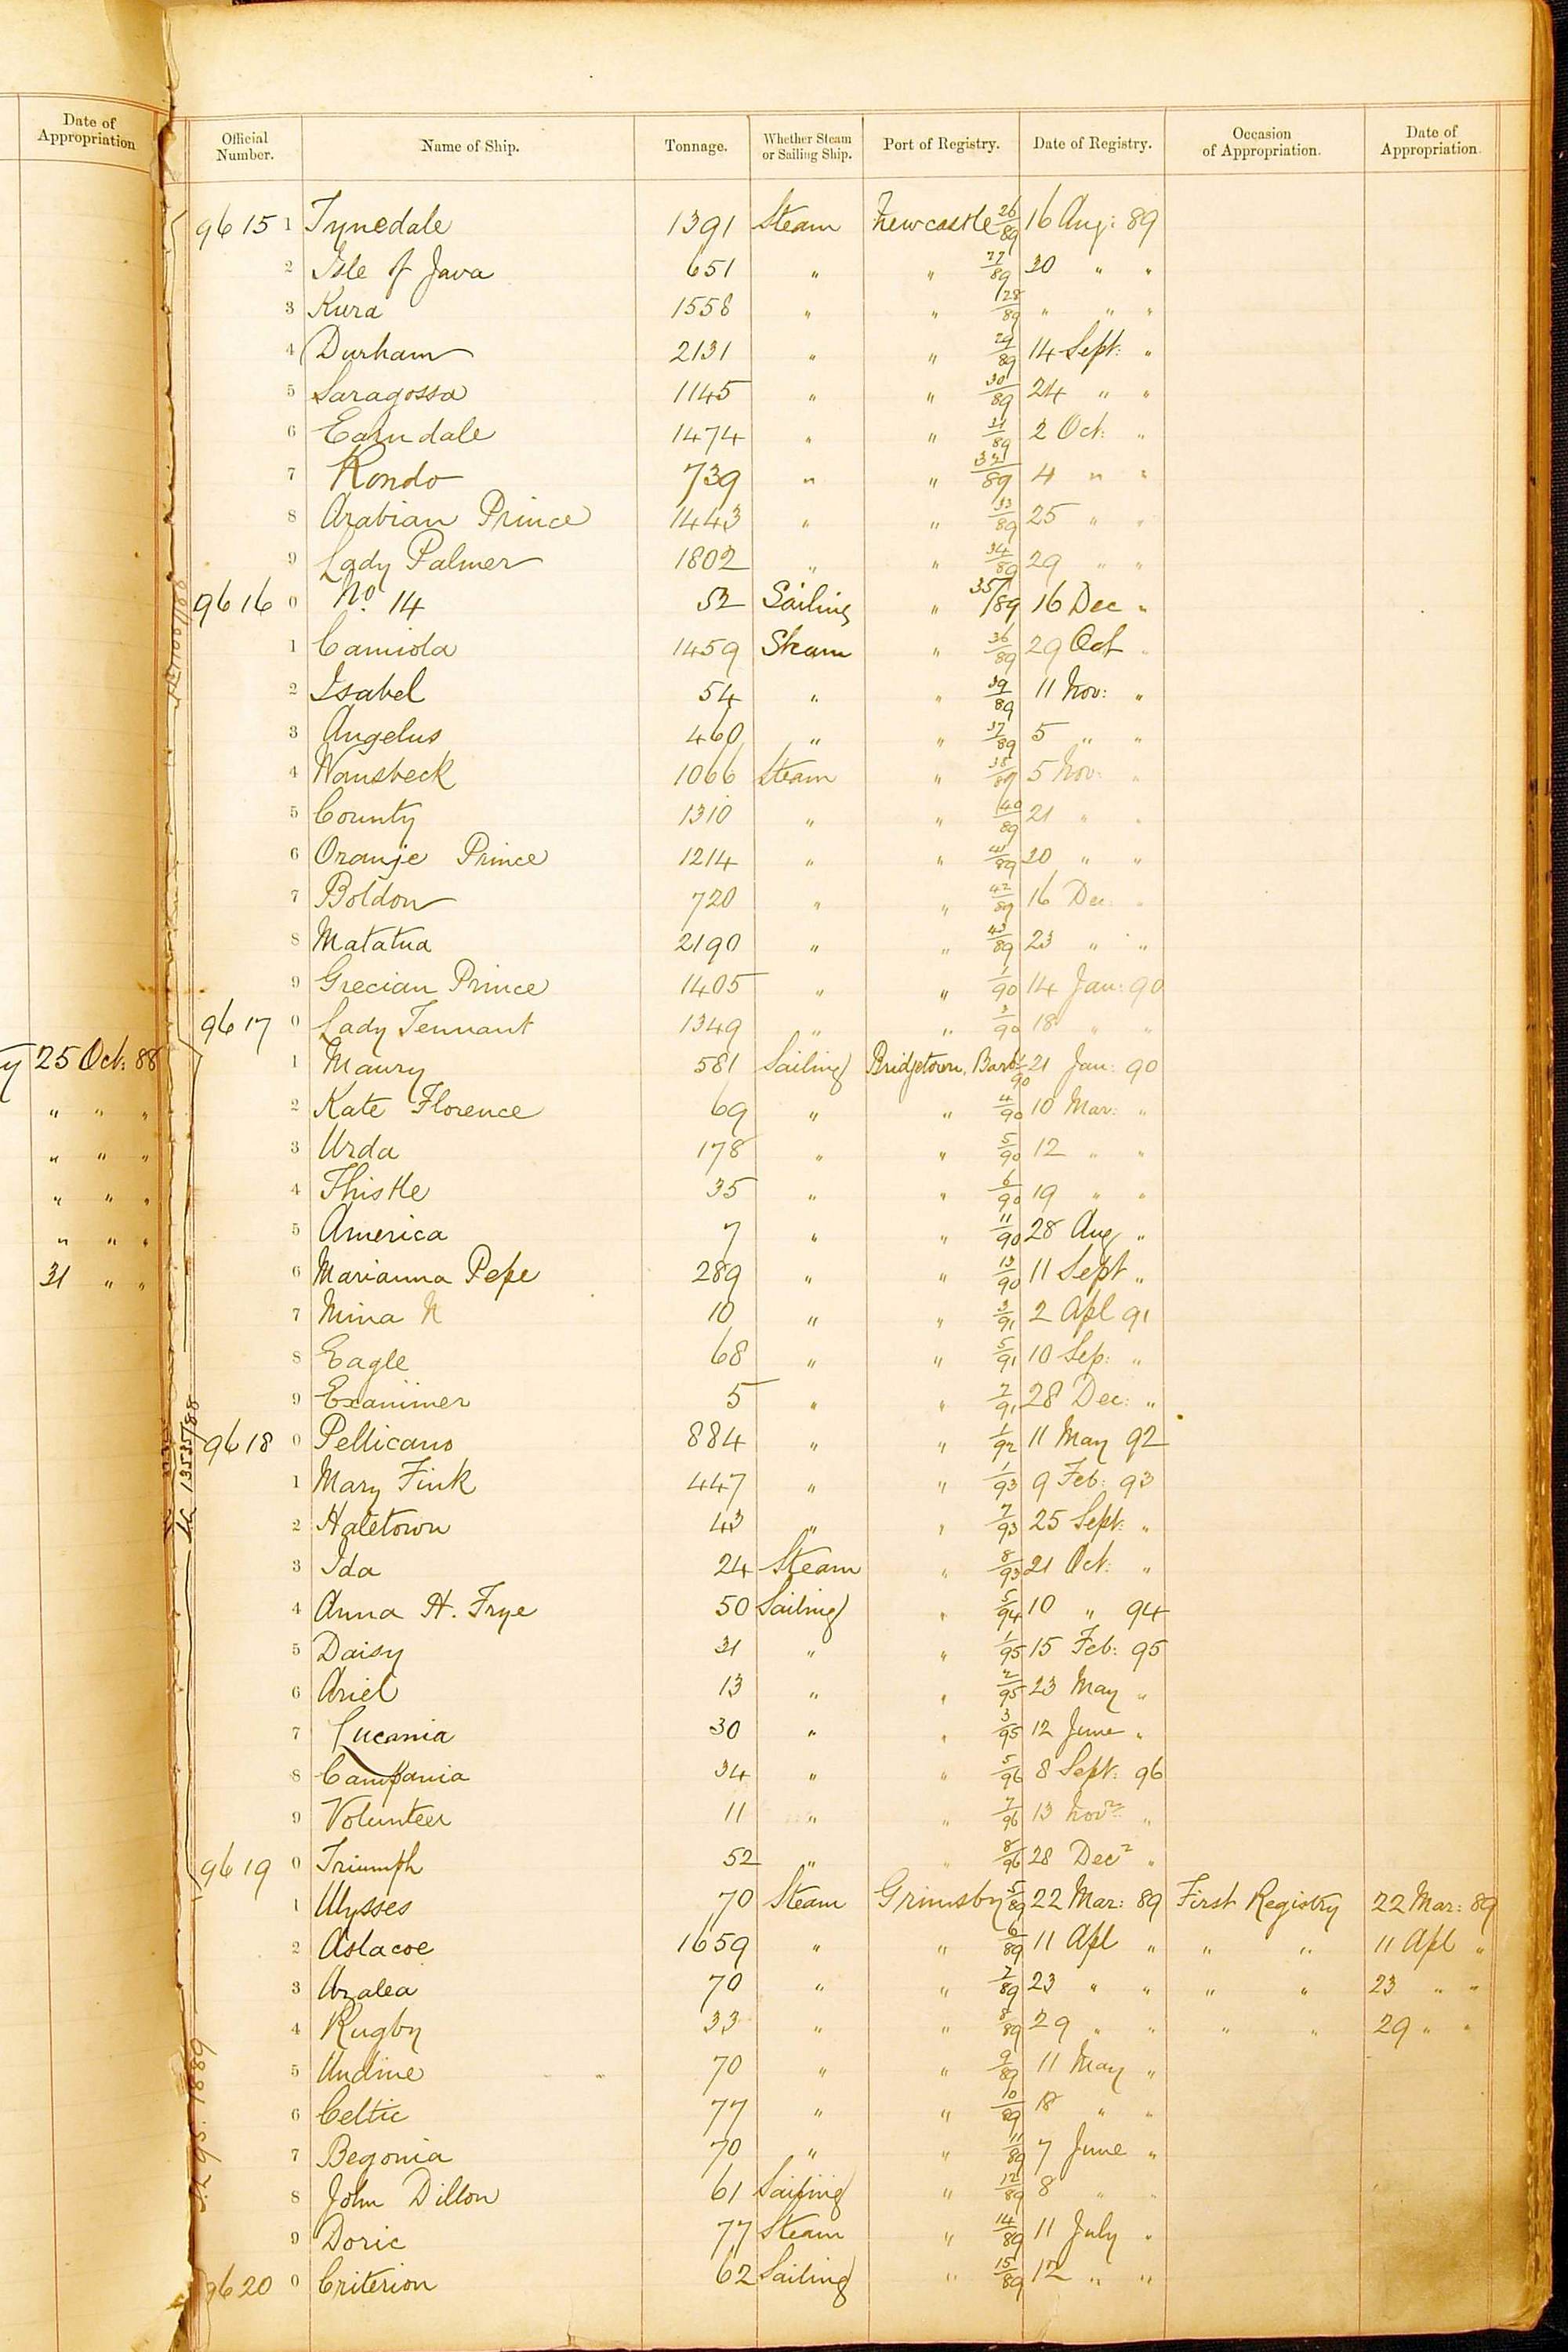 Date of Appropriation
25 Oct: 88
" " "
" " "
" " "
" " "
31 " "
Official Number. Name of Ship. Tonnage. Whether Steam or Sailing Ship. Port of Registry. Date of Registry. Occasion of Appropriation. Date of Appropriation.
9615 1 Tynedale 1391 Steam Newcastle 26/89 16 Aug: 89
2 Isle of Java 651 " " 27/89 30 " "
3 Kura 1558 " " 28/89 " " "
4 Durham 2131 " " 29/89 14 Sept: "
5 Saragossa 1145 " " 30/89 24 " "
6 Earndale 1474 " " 31/89 2 Oct: "
7 Rondo 739 " " 32/89 4 " "
8 Arabian Prince 1443 " " 33/89 25 " "
9 Lady Palmer 1802 " " 34/89 29 " "
9616 0 No. 14 52 Sailing " 35/89 16 Dec "
1 Camiola 1459 Steam " 36/89 29 Oct "
2 Isabel 54 " " 39/89 11 Nov: "
3 Angelus 460 " " 37/89 5 " "
4 Wansbeck 1066 Steam " 38/89 5 Nov: "
5 County 1310 " " 40/89 21 " "
6 Oranje Prince 1214 " " 41/89 20 " "
7 Boldon 720 " " 42/89 16 Dec: "
8 Matatua 2190 " " 43/89 23 " "
9 Grecian Prince 1405 " " 1/90 14 Jan: 90
9617 0 Lady Tennant 1349 " " 3/90 18 " "
1 Maury 581 Sailing Bridgetown, Barb. 21 Jan: 90
2 Kate Florence 69 " " 4/90 10 Mar: "
3 Urda 178 " " 5/90 12 " "
4 Thistle 35 " " 6/90 19 " "
5 America 7 " " 11/90 28 Aug "
6 Marianna Pepe 289 " " 13/90 11 Sept "
7 Nina N 10 " " 3/91 2 Apl 91
8 Eagle 68 " " 5/91 10 Sep: "
9 Examiner 5 " " 7/91 28 Dec: "
9618 0 Pellicano 884 " " 1/92 11 May 92
1 Mary Fink 447 " " 1/93 9 Feb: 93
2 Holetown 43 " " 7/93 25 Sept: "
3 Ida 24 Steam " 8/93 21 Oct: "
4 Anna H. Frye 50 Sailing " 5/94 10 " 94
5 Daisy 31 " " 1/95 15 Feb: 95
6 Ariel 13 " " 2/95 23 May "
7 Lucania 30 " " 3/95 12 June "
8 Campania 34 " " 5/96 8 Sept: 96
9 Volunteer 11 " " 7/96 13 Novr "
9619 0 Triumph 52 " " 8/96 28 Decr "
1 Ulysses 70 Steam Grimsby 5/89 22 Mar: 89 First Registry 22 Mar: 89
2 Aslacoe 1659 " " 6/89 11 Apl " " " 11 Apl "
3 Azalea 70 " " 7/89 23 " " " " 23 " "
4 Rugby 33 " " 8/89 29 " " " " 29 " "
5 Undine 70 " " 9/89 11 May "
6 Celtic 77 " " 10/89 18 " "
7 Begonia 70 " " 11/89 7 June "
8 John Dillon 61 Sailing " 12/89 8 " "
9 Doric 77 Steam " 14/89 11 July "
9620 0 Criterion 62 Sailing " 15/89 12 " "